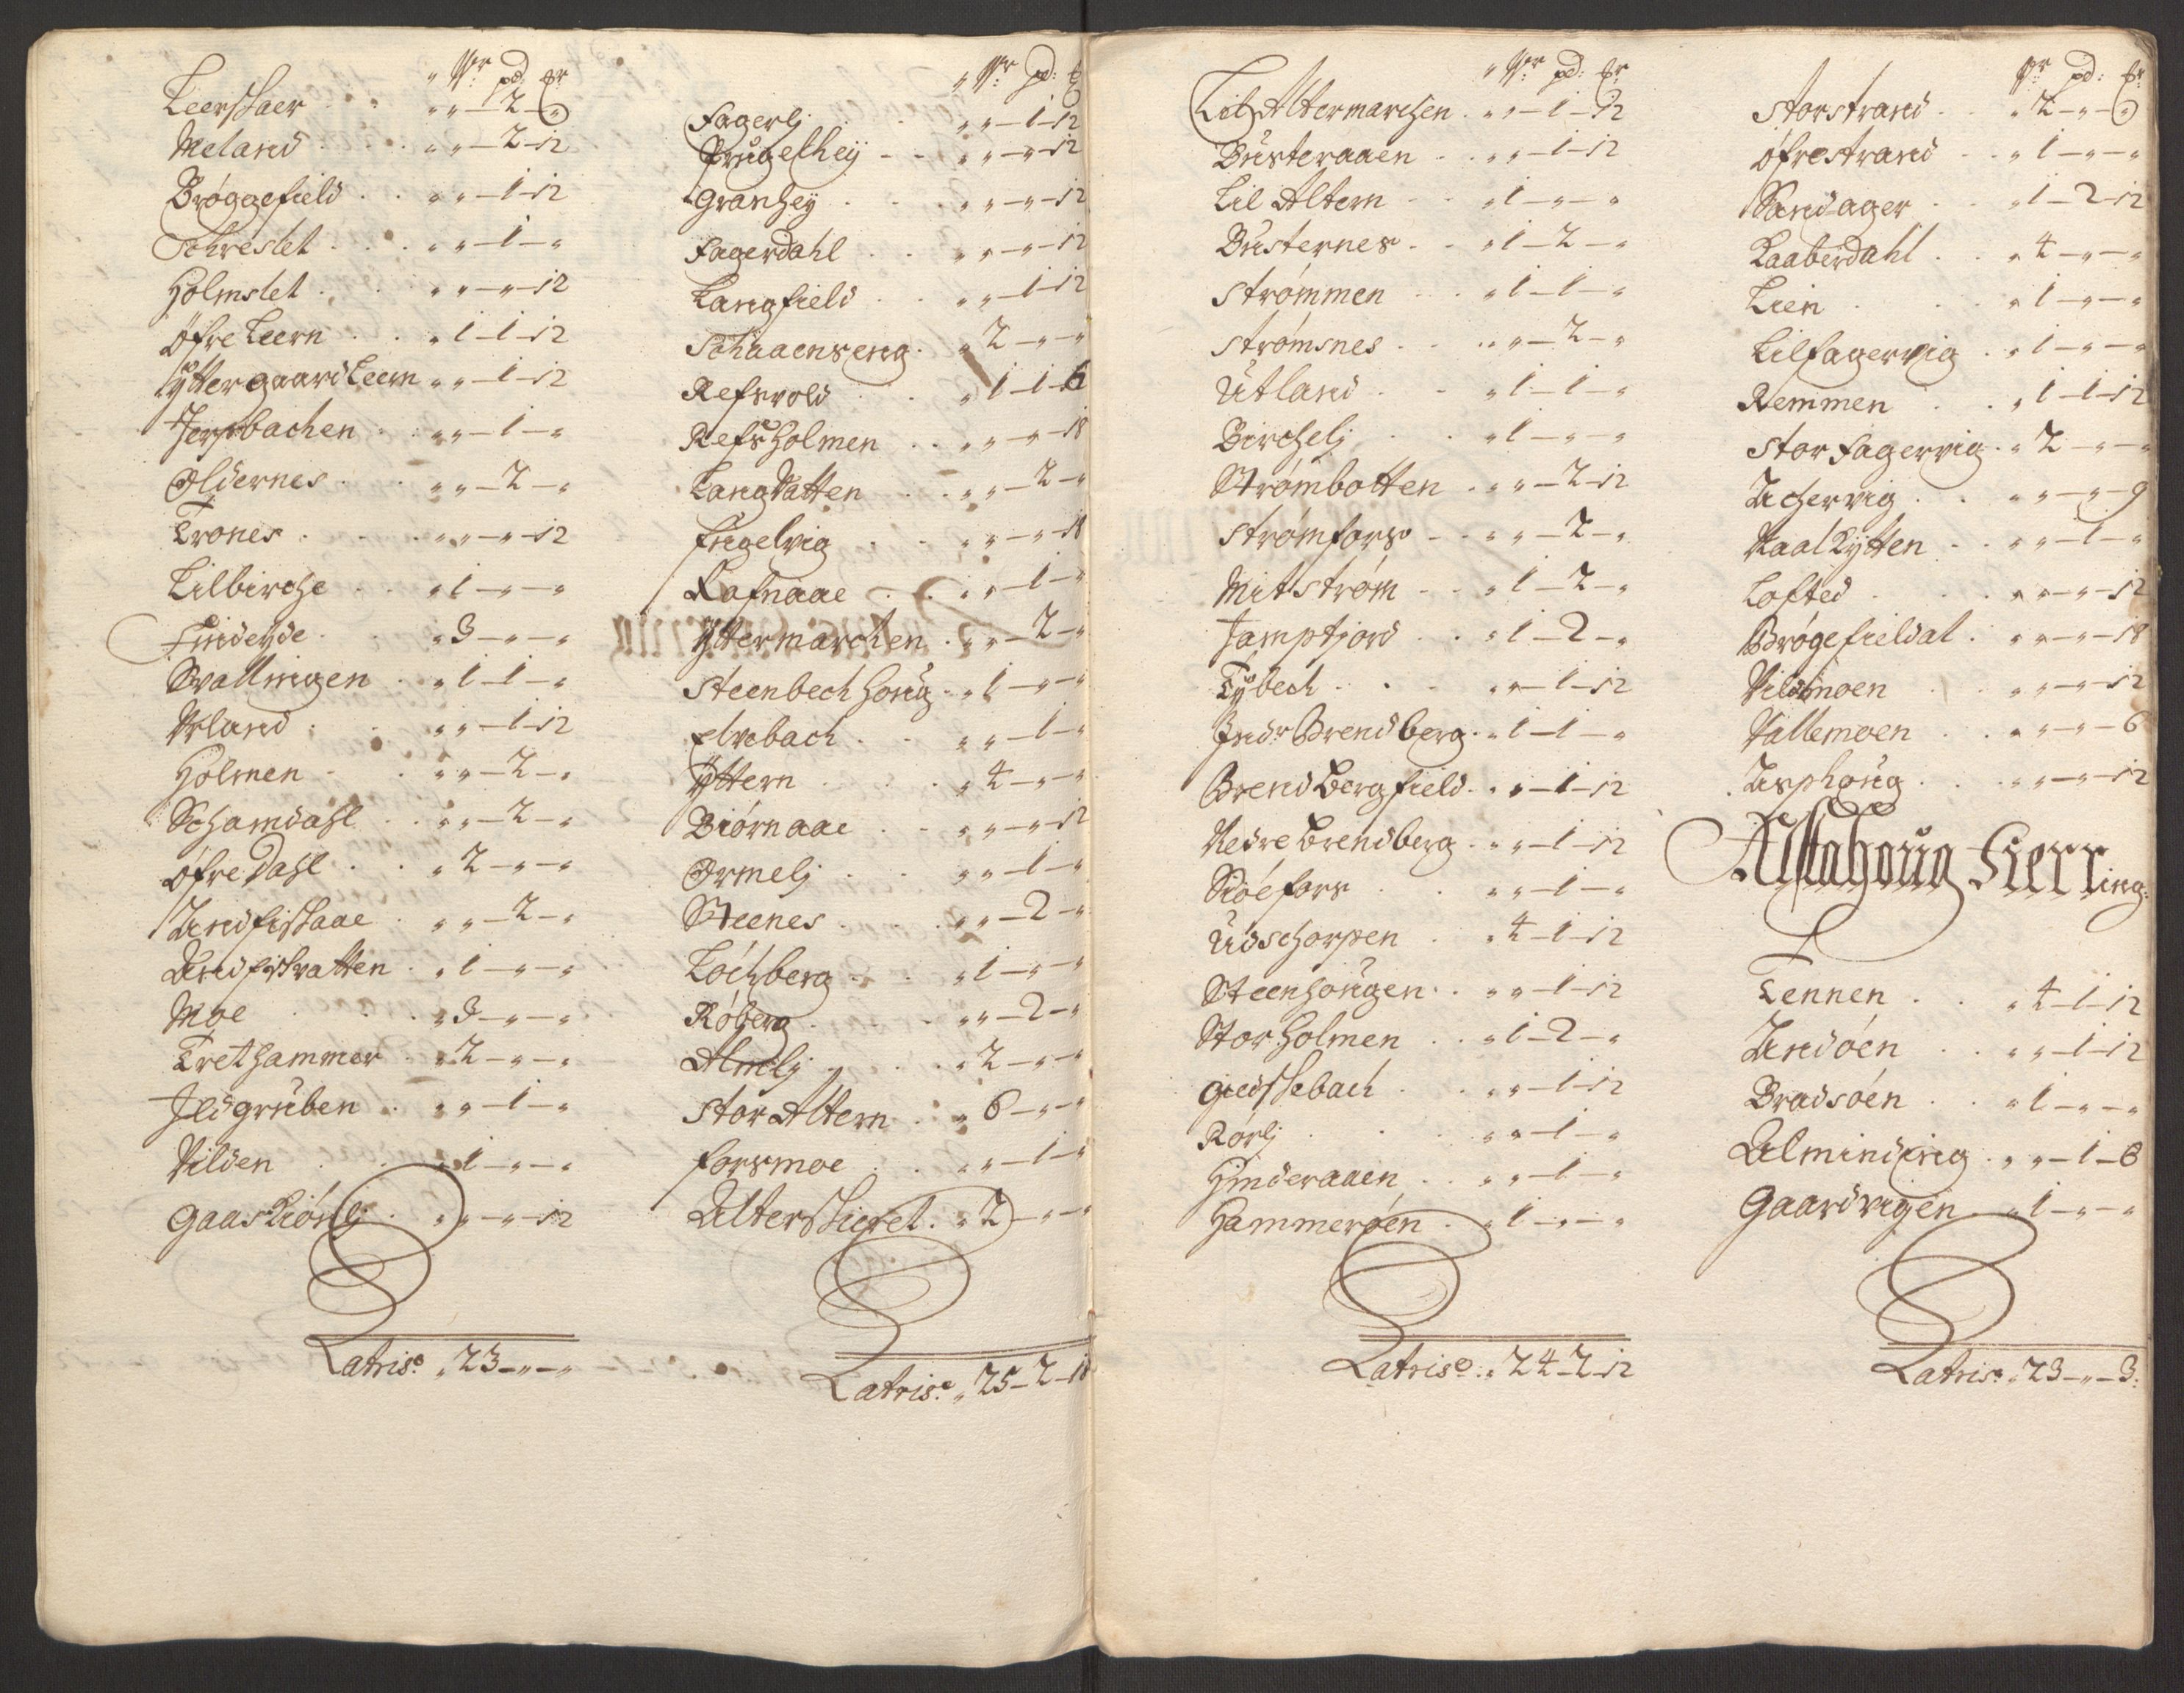 „ Wr pd: Er
Leerschaer . . „ „ – 2 – „
Meland . . . „ „ – 2 – 12
Brøggefield . . „ „ – 1 – 12
Schreslet . . „ „ – 1 – „
Holmslet . . „ „ – „ – 12
Øfre Leern . . „ 1 – 1 – 12
Ytter gaard Leern „ „ – 1 – 12
Jerpbachen . . „ „ – 1 – „
Oldernes . . „ „ – 2 – „
Trones . . . „ „ – „ – 12
Lilbirche . . „ 1 – „ – „
Sindeyde . . „ 3 – „ – „
Svallningen . „ 1 – 1 – „
Urland . . „ „ – 1 – 12
Holmen . . „ „ – 2 – „
Schamdahl . . „ „ – 2 – „
Øfre Dahl . . „ 2 – „ – „
Andfiskaae . „ „ – 2 – „
Andfiskvatten . „ 1 – „ – „
Moe . . . „ 3 – „ – „
Trethammer . „ 2 – „ – „
Ildgruben . . „ „ – 1 – „
Vilden . . „ 1 – „ – „
Gaaskiønlj . „ „ – „ – 12
Latris: „ 23 – „ – „
„ Wr pd: Er
Fagerlj . . „ „ – 1 – 12
Prugelhey . . „ „ – „ – 12
Granhey . . „ „ – „ – 12
Fagerdahl . . „ „ – „ – 12
Langfield . . „ „ – 1 – 12
Schaaenseng . „ 2 – „ – „
Refsvold . . „ 1 – 1 – 6
Refsholmen . . „ „ – „ – 18
Langvatten . . „ „ – 2 – „
Engelvig . . „ „ – „ – 18
Rafnaae . . „ „ – 1 – „
Yttermarchen . „ „ – 2 – „
Steenbechhoug . „ 1 – „ – „
Elvebach . . „ „ – 1 – „
Yttern . . „ 4 – „ – „
Biørnaae . . „ „ – „ – 12
Ormelj . . „ „ – 1 – „
Steenes . . „ „ – 2 – „
Løchberg . . „ 1 – „ – „
Røberg . . „ „ – 2 – „
Almlj . . „ 2 – „ – „
Stor Altern . „ 6 – „ – „
Forsmoe . . „ „ – 1 – „
Alterskieret . „ 2 – „ – „
Latris: „ 25 – 2 – 18
„ Wr pd: Er
Lil Altermarchen . „ „ – 1 – 12
Busteraaen . . „ „ – 1 – 12
Lil Altern . . „ 1 – „ – „
Busternes . . „ 1 – 2 – „
Strømmen . . „ 1 – 1 – „
Strømsnes . . „ „ – 2 – „
Utland . . „ 1 – 1 – „
Birchelj . . „ 1 – „ – „
Strømbotten . „ „ – 2 – 12
Strømfors . . „ „ – 2 – „
Mitstrøm . . „ 1 – 2 – „
Jamptjord . . „ 1 – 2 – „
Tybech . . . „ „ – 1 – 12
Indr Brendberg . „ 1 – 1 – „
Brendbergfield . „ „ – 1 – 12
Nedre Brendberg . „ „ – 1 – 12
Skøefors . . „ „ – 1 – „
Udschorpen . „ 4 – 1 – 12
Steenhougen . . „ „ – 1 – 12
Storholmen . . „ 1 – 2 – „
Giedssebach . . „ „ – 1 – 12
Rørlj . . „ „ – 1 – „
Hinderaaen . . „ „ – 1 – „
Hammerøen . „ 1 – „ – „
Latris: „ 24 – 2 – 12
Wr pd: Er
Storstrand . „ 2 – „ – „
Øfrestrand . . „ 1 – „ – „
Sandager . . „ 1 – 2 – 12
Kaaberdahl . . „ 4 – „ – „
Lien . . „ 1 – „ – „
Lilfagervig . „ 1 – „ – „
Remmen . . „ 1 – 1 – 12
Stor Fagervig . „ 2 – „ – „
Achervig . . „ „ – „ – 9
Kaalkytten . . „ „ – 1 – „
Lofted . . . „ „ – „ – 12
Brøgefieldal . „ „ – „ – 18
Vildmoen . „ „ – „ – 12
Vallemoen . . „ „ – „ – 6
Asphoug . . „ „ – „ – 12
Alstahoug Fierring:
Tennen . . „ 4 – 1 – 12
Andøen . . „ „ – 1 – 12
Bradsøen . . „ 1 – „ – „
Alminding . „ „ – 1 – 6
Gaardvigen „ 1 – „ – „
Latris: „ 23 – „ – 3: